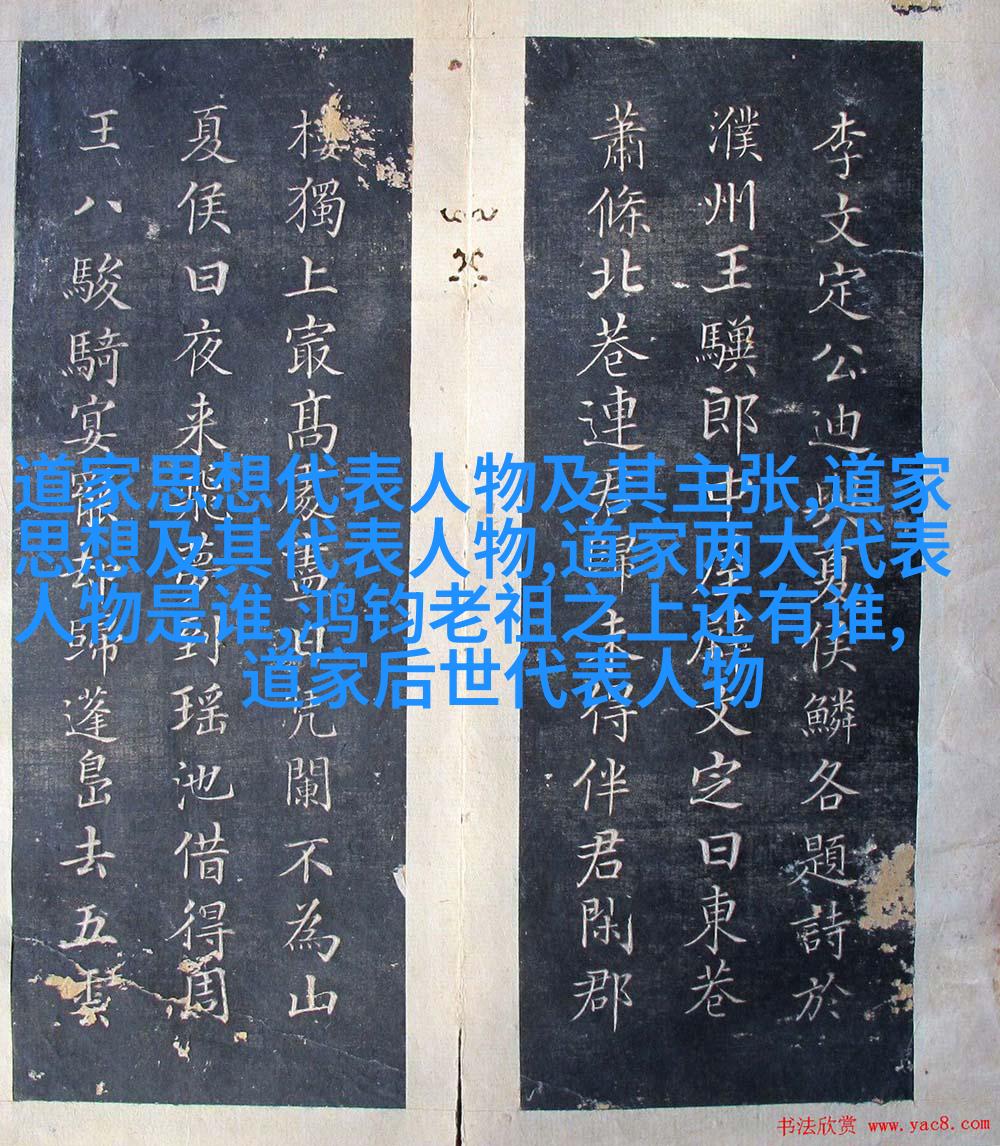 李文定公迪與夏侯鱗各題詩於
濮州王驥郎中屋壁文定曰東巷
蕭條北巷連君歸未得伴君閑郡
樓獨上㝡髙處舊日凭闌不為山
夏侯曰夜来飛夢到瑶池借得周
王八駿騎宴罷却歸蓬島去五雲
道家思想代表人物及其主张,道家
思想及其代表人物,道家两大代表
人物是谁,鸿钧老祖之上还有谁,
道家后世代表人物
书法欣赏 www.yac8.com